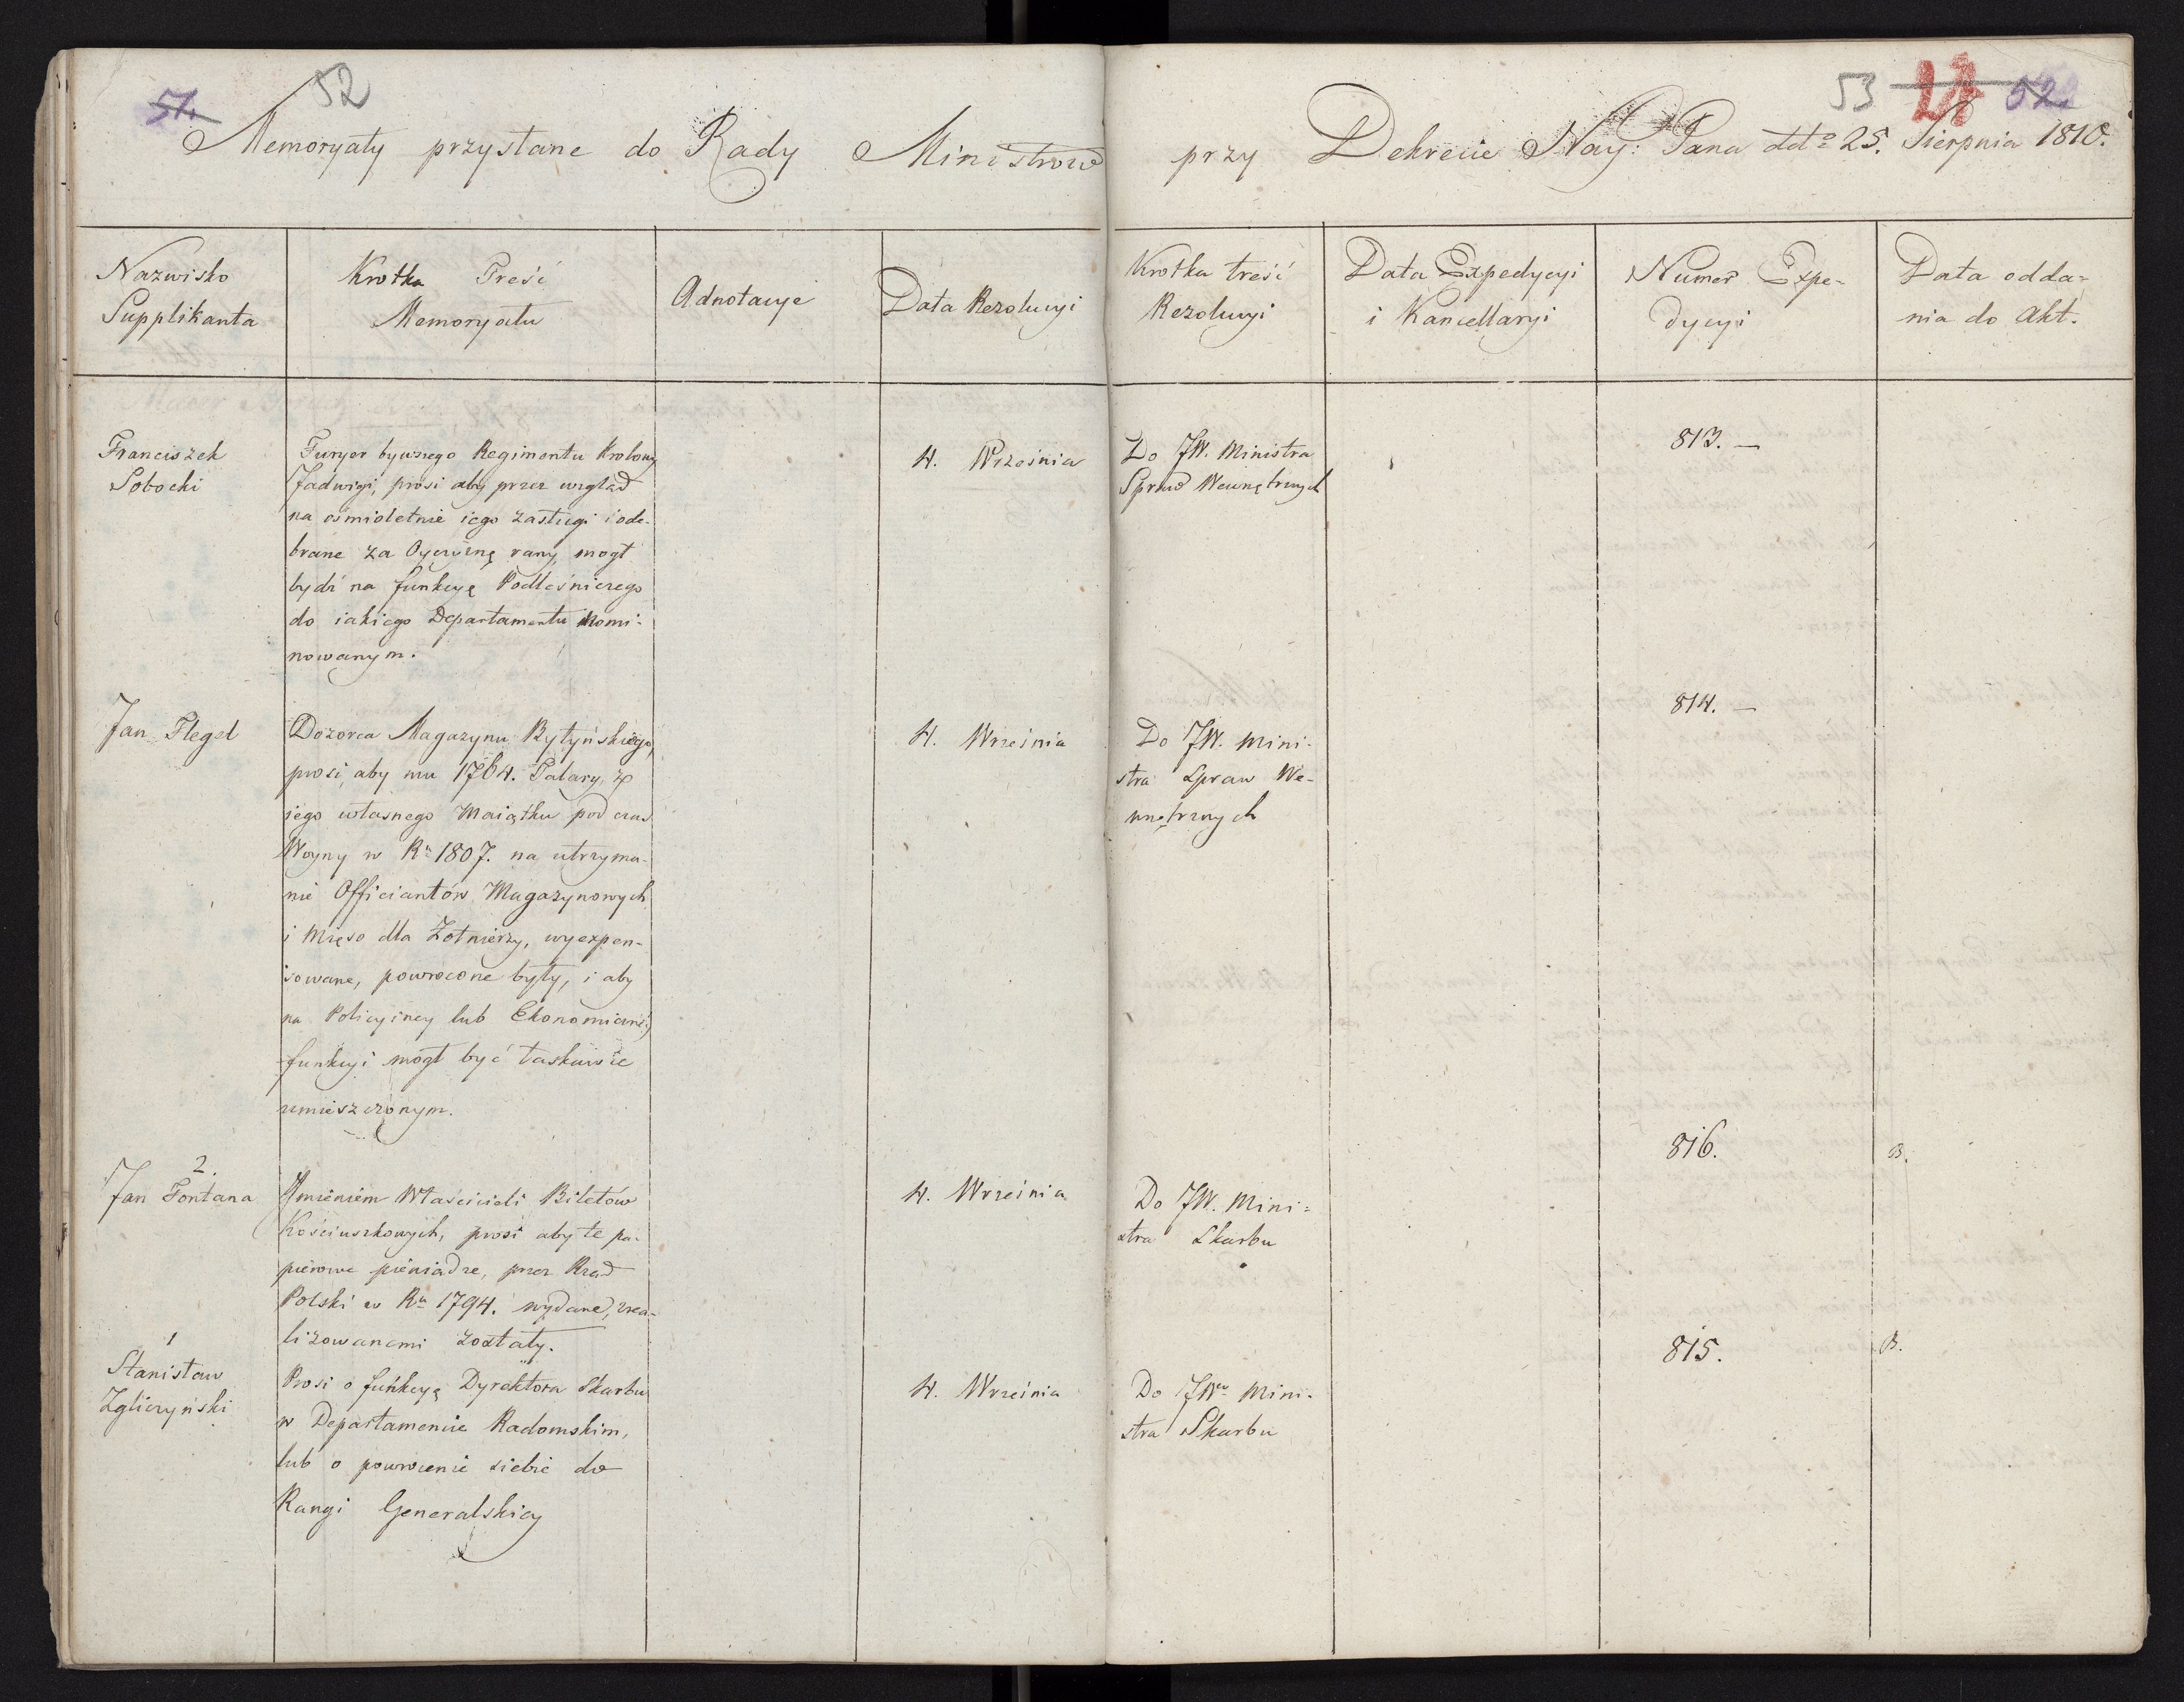 51.
52
53
28
52.
Memoryały przysłane do Rady Ministrow przy Dekrecie Nay: Pana ddto 25. Sierpnia 1810.
Nazwisko
Supplikanta
Krotka Treść
Memoryału
Adnotacye
Data Rezolucyi
Krotka treść
Rezolucyi
Data Expedycyi
i Kancellaryi
Numer Expe-
dycyi
Data odda-
nia do Akt.
Franciszek
Sobocki
Furyer bywszego Regimentu Krolowy
Jadwigi, prosi aby przez wzgląd
na osmioletnie iego zasługi i ode-
brane za Oyczyznę rany, mogł
bydź na funkcyę Podleśniczego
do iakiego Departamentu Nomi-
nowanym.
4. Września
Do JW. Ministra
Spraw Wewnętrznych
813. —
Jan Flegel
Dozorca Magazynu Bytyńskiego,
prosi, aby mu 1764. Talary, z
iego własnego Maiątku pod czas
Woyny w Ru 1807. na utrzyma-
nie Officiantów Magazynowych
i Mięso dla Żołnierzy, wyexpen-
sowane, powrocone były, i aby
na Policyiney lub Ekonomiczney
funkcyi mógł być łaskawie
umieszczonym.
4. Września
Do JW. Mini-
stra Spraw We-
wnętrznych
814. —
2.
Jan Fontana
Imieniem Właścicieli Biletów
Kościuszkowych, prosi aby te pa-
pierowe pieniądze, przez Rząd
Polski w Ru 1794. wydane, zrea-
lizowanemi zostały.
4. Września
Do JW. Mini-
stra Skarbu
816.
B.
1
Stanisław
Zgliczyński
Prosi o funkcyę Dyrektora Skarbu
w Departamencie Radomskim,
lub o powrocenie siebie do
Rangi Generalskiey
4. Września
Do JWo Mini-
stra Skarbu
815.
B.